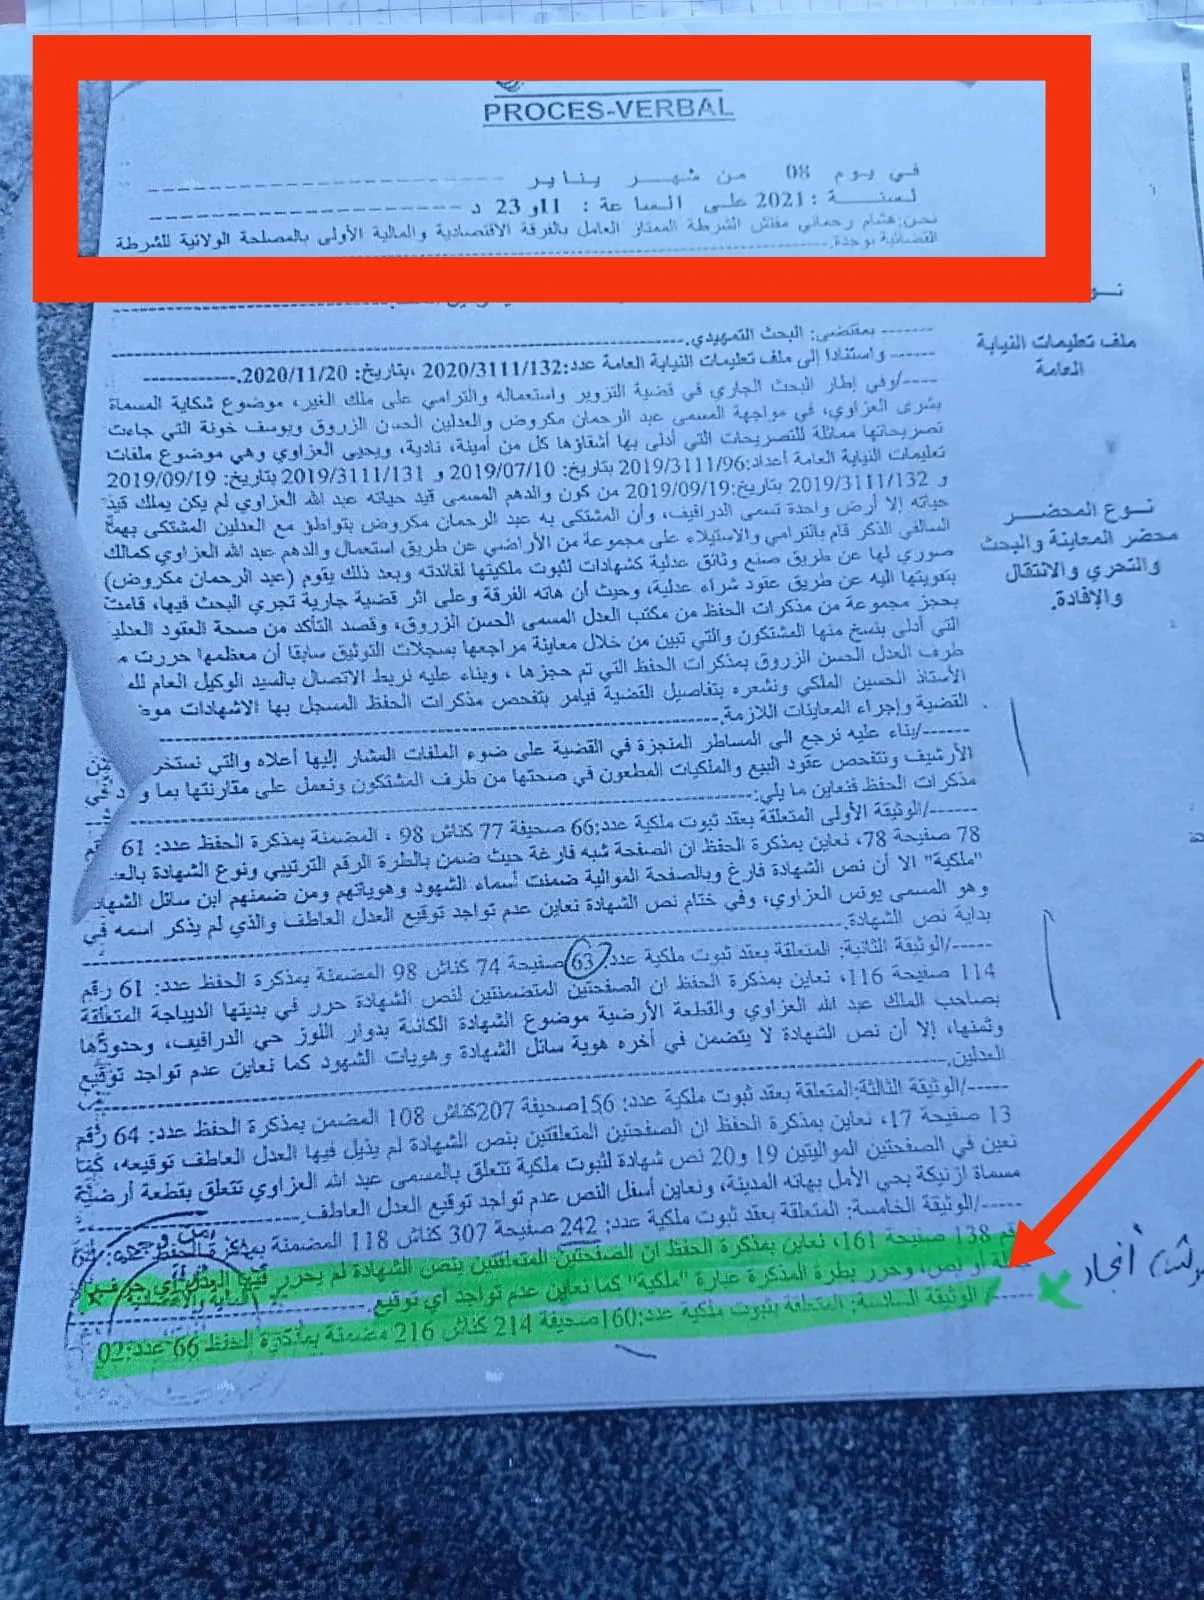 PROCES-VERBAL
في يوم 08 من شهر يناير
لسنة : 2021 على الساعة : 11و 23 د
نحن: هشام رحماني مفتش الشرطة الممتاز العامل بالفرقة الاقتصادية والمالية الأولى بالمصلحة الولائية للشرطة
القضائية بوجدة.
ملف تعليمات النيابة
العامة
نوع المحضر
محضر المعاينة والبحث
والتحري والانتقال
والإفادة.
------- بمقتضى: البحث التمهيدي.
------ واستنادا إلى ملف تعليمات النيابة العامة عدد:2020/3111/132 ،بتاريخ: 2020/11/20.
----/وفي إطار البحث الجاري في قضية التزوير واستعماله والترامي على ملك الغير، موضوع شكاية المسماة
بشرى العزاوي، في مواجهة المسمى عبد الرحمان مكروض والعدلين الحسن الزروق ويوسف خونة التي جاءت
تصريحاتها مماثلة للتصريحات التي أدلى بها أشقاؤها كل من أمينة، نادية، ويحيى العزاوي وهي موضوع ملفات
تعليمات النيابة العامة أعداد:2019/3111/96 بتاريخ: 2019/07/10 و 2019/3111/131 بتاريخ: 2019/09/19
و 2019/3111/132 بتاريخ:2019/09/19 من كون والدهم المسمى قيد حياته عبد الله العزاوي لم يكن يملك قيد
حياته إلا أرض واحدة تسمى الدرافيف، وأن المشتكى به عبد الرحمان مكروض بتواطؤ مع العدلين المشتكى بهما
السالفي الذكر قام بالترامي والاستيلاء على مجموعة من الأراضي عن طريق استعمال والدهم عبد الله العزاوي كمالك
صوري لها عن طريق صنع وثائق عدلية كشهادات لثبوت ملكيتها لفائدته وبعد ذلك يقوم (عبد الرحمان مكروض)
بتفويتها اليه عن طريق عقود شراء عدلية، وحيث أن هاته الفرقة وعلى اثر قضية جارية تجري البحث فيها، قامت
بحجز مجموعة من مذكرات الحفظ من مكتب العدل المسمى الحسن الزروق، وقصد التأكد من صحة العقود العدلية
التي أدلى بنسخ منها المشتكون والتي تبين من خلال معاينة مراجعها بسجلات التوثيق سابقا أن معظمها حررت
طرف العدل الحسن الزروق بمذكرات الحفظ التي تم حجزها ، وبناء عليه نربط الاتصال بالسيد الوكيل العام
الأستاذ الحسين الملكي ونشعره بتفاصيل القضية فيأمر بتفحص مذكرات الحفظ المسجل بها الاشهادات
القضية وإجراء المعاينات اللازمة.
------/بناء عليه نرجع الى المساطر المنجزة في القضية على ضوء الملفات المشار إليها أعلاه والتي
الأرشيف ونتفحص عقود البيع والملكيات المطعون في صحتها من طرف المشتكون ونعمل على مقارنتها بما
مذكرات الحفظ فنعاين ما يلي:
------/الوثيقة الأولى المتعلقة بعقد ثبوت ملكية عدد:66 صحيفة 77 كناش 98 ، المضمنة بمذكرة الحفظ عدد: 61
78 صفحة 78، نعاين بمذكرة الحفظ ان الصفحة شبه فارغة حيث ضمن بالطرة الرقم الترتيبي ونوع الشهادة
"ملكية" الا أن نص الشهادة فارغ وبالصفحة الموالية ضمنت أسماء الشهود وهوياتهم ومن ضمنهم ابن سائل
وهو المسمى يونس العزاوي، وفي ختام نص الشهادة نعاين عدم تواجد توقيع العدل العاطف والذي لم يذكر اسمه في
بداية نص الشهادة.
-----/الوثيقة الثانية: المتعلقة بعقد ثبوت ملكية عدد: 63 صفحة 74 كناش 98 المضمنة بمذكرة الحفظ عدد: 61 رقم
114 صفحة 116، نعاين بمذكرة الحفظ ان الصفحتين المتضمنتين لنص الشهادة حرر في بديتها الديباجة المتعلقة
بصاحب الملك عبد الله العزاوي والقطعة الأرضية موضوع الشهادة الكائنة بدوار اللوز حي الدرافيف، وحدودها
وثمنها، إلا أن نص الشهادة لا يتضمن في أخره هوية سائل الشهادة وهويات الشهود كما نعاين عدم تواجد توقيع
العدلين.
-----/الوثيقة الثالثة:المتعلقة بعقد ثبوت ملكية عدد: 156صحيفة 207كناش 108 المضمن بمذكرة الحفظ عدد: 64 رقم
13 صفحة 17، نعاين بمذكرة الحفظ ان الصفحتين المتعلقتين بنص الشهادة لم يذيل فيها العدل العاطف توقيعه، كما
نعين في الصفحتين المواليتين 19 و20 نص شهادة لثبوت ملكية تتعلق بالمسمى عبد الله العزاوي تتعلق بقطعة أرضية
مسماة ازنيكة بحي الأمل بهاته المدينة، ونعاين أسفل النص عدم تواجد توقيع العدل العاطف.
-----/الوثيقة الخامسة: المتعلقة بعقد ثبوت ملكية عدد: 242 صفحة 307 كناش 118 المضمنة بمذكرة الحفظ
138 صفحة 161، نعاين بمذكرة الحفظ ان الصفحتين المتعلقتين بنص الشهادة لم يحرر فيها العدل أي
أو نص، وحرر بطرة المذكرة عبارة "ملكية" كما نعاين عدم تواجد اي توقيع.
-----/الوثيقة السادسة: المتعلقة بثبوت ملكية عدد:160صحيفة 214 كناش 216 مضمنة بمذكرة الحفظ 66 عدد:02
أنجاد